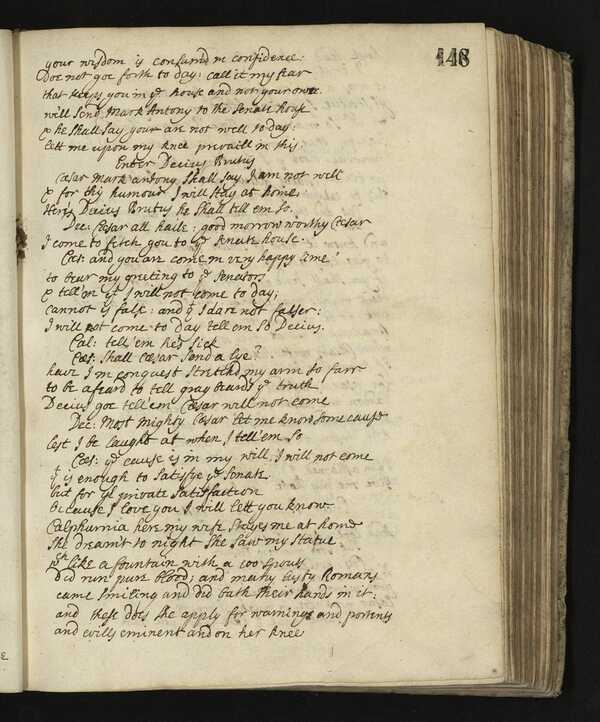 148
your wisdom is consum'd in confidence:
Doe not goe forth to day: call it my fear
that keeps you in ye house and not your owne.
will send Mark Antony to the Senate house
& he shall say your are not well to day:
lett me upon my knee prevaill in this
Enter Decius Brutus
Cæsar Mark antony shall say I am not well
& for thy humour I will stay at home,
Here's Decius Brutus he shall tell em so.
Dec: Cæsar all haile: good morrow worthy Cæsar
I come to fetch you to ye senate house.
Cæs: and you are come in very happy time
to bear my greeting to ye Senators
& tell 'm yt I will not come to day;
cannot is false: and yt I dare not falser:
I will not come to day tell em so Decius.
Cal: tell 'em he's sick
Cæs: shall Cæsar send a lye?
have I in conquest stretch'd my arm so farr
to be afeard to tell gray beards ye truth
Decius goe tell 'em Cæsar will not come
Dec: Most mighty Cæsar let me know some cause
lest I be laught at when I tell 'em so
Cæs: ye cause is in my will, I will not come
yt is enough to satisfye ye Senate
but for yr private satisfaction
because I love you I will lett you know
Calphurnia here my wife stayes me at home
she dream't to night she saw my statue
wch like a fountain with a 100 spouts
did run pure blood; and many lusty Romans
came smiling and did bath their hands in it:
and these does she apply for warnings and portents
and evills eminent and on her knee